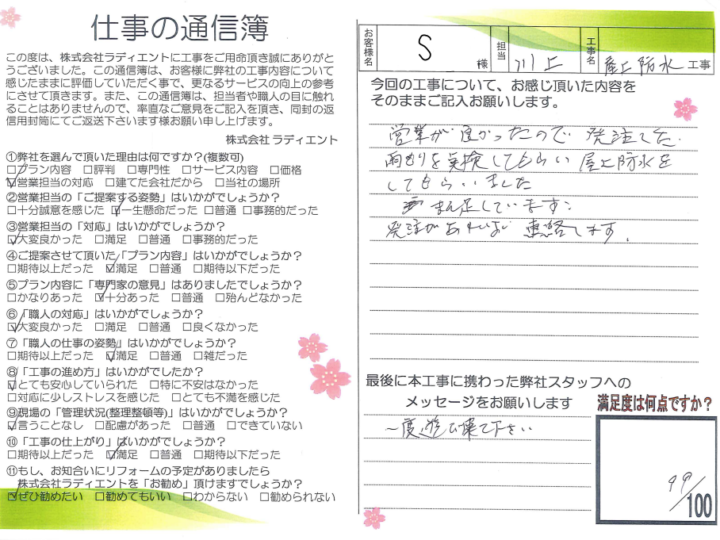 仕事の通信簿
この度は、株式会社ラディエントに工事をご用命頂き誠にありがと
うございました。この通信簿は、お客様に弊社の工事内容について
感じたままに評価していただく事で、更なるサービスの向上の参考
にさせて頂きます。また、この通信簿は、担当者や職人の目に触れ
ることはありませんので、率直なご意見をご記入を頂き、同封の返
信用封筒にてご返送下さいます様お願い申し上げます。
株式会社 ラディエント
①弊社を選んで頂いた理由は何ですか?(複数可)
□プラン内容 □評判 □専門性 □サービス内容 □価格
☑営業担当の対応 □建てた会社だから □当社の場所
②営業担当の「ご提案する姿勢」はいかがでしょうか?
□十分誠意を感じた ☑一生懸命だった □普通 □事務的だった
③営業担当の「対応」はいかがでしょうか?
☑大変良かった □満足 □普通 □事務的だった
④ご提案させて頂いた「プラン内容」はいかがでしょうか?
□期待以上だった ☑満足 □普通 □期待以下だった
⑤プラン内容に「専門家の意見」はありましたでしょうか?
□かなりあった ☑十分あった □普通 □殆んどなかった
⑥「職人の対応」はいかがでしょうか?
☑大変良かった □満足 □普通 □良くなかった
⑦「職人の仕事の姿勢」はいかがでしょうか?
□期待以上だった ☑満足 □普通 □雑だった
⑧「工事の進め方」はいかがでしたか?
☑とても安心していられた □特に不安はなかった
□対応に少しストレスを感じた □とても不満を感じた
⑨現場の「管理状況(整理整頓等)」はいかがでしょうか?
☑言うことなし □配慮があった □普通 □できていない
⑩「工事の仕上がり」はいかがでしょうか?
□期待以上だった ☑満足 □普通 □期待以下だった
⑪もし、お知合いにリフォームの予定がありましたら
株式会社ラディエントを「お勧め」頂けますでしょうか?
☑ぜひ勧めたい □勧めてもいい □わからない □勧められない
お客様名 S 様 担当 川上 工事名 屋上防水 工事
今回の工事について、お感じ頂いた内容を
そのままご記入お願いします。
営業が良かったので 発注した.
雨もりを点検してもらい 屋上防水を
してもらいました
まん足しています.
発注があれば 連絡します.
最後に本工事に携わった弊社スタッフへの
メッセージをお願いします
一度遊びに来て下さい
満足度は何点ですか?
99/100